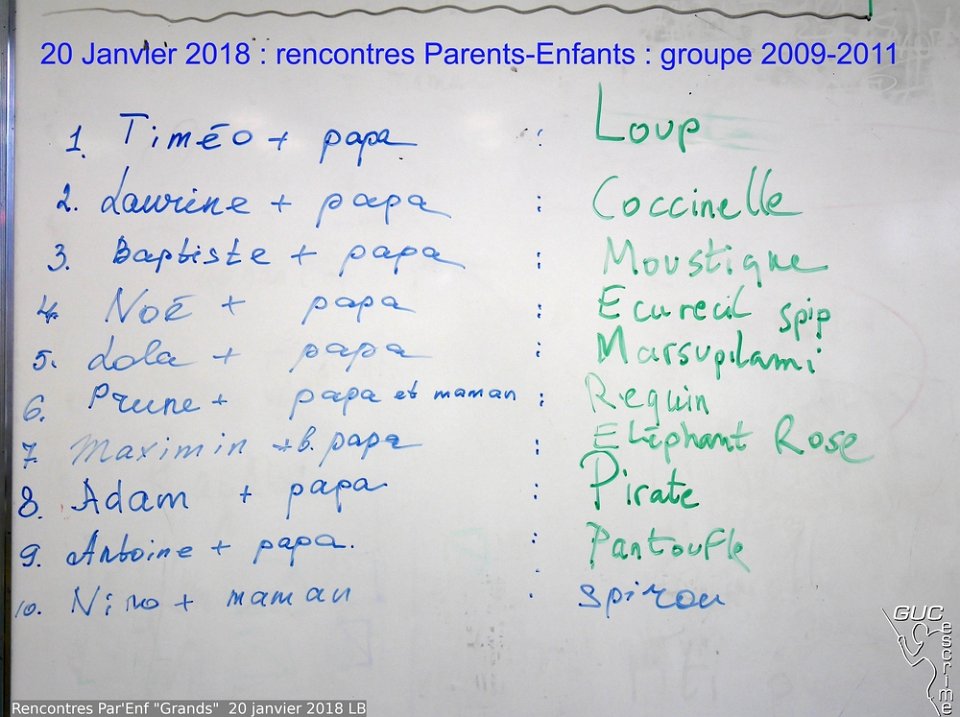 20 Janvier 2018 : rencontres Parents-Enfants : groupe 2009-2011
1. Timéo + papa : Loup
2. Laurine + papa : Coccinelle
3. Baptiste + papa : Moustique
4. Noé + papa : Ecureuil spip
5. Lola + papa : Marsupilami
6. Prune + papa et maman : Requin
7. Maximin + b. papa : Eléphant Rose
8. Adam + papa : Pirate
9. Antoine + papa. : Pantoufle
10. Nino + maman : Spirou
GUC
escrime
Rencontres Par'Enf "Grands" 20 janvier 2018 LB